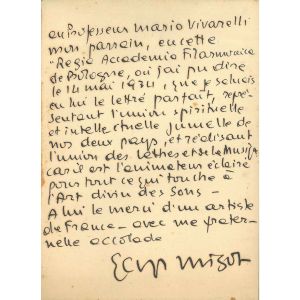 au Professeur Mario Vivarelli
mon parrain, en cette
"Regia Accademia Filarmonica
de Bologne, où j'ai pu dire
le 14 mai 1934, que je saluais
en lui le lettré parfait, repré-
sentant l'union spirituelle
et intellectuelle jumelle de
nos deux pays, et réalisant
l'union des Lettres et de la Musique
car il est l'animateur éclairé
pour tout ce qui touche à
l'Art divin des Sons -
A lui le merci d'un artiste
de France - avec me frater-
nelle accolade
Georges Migot